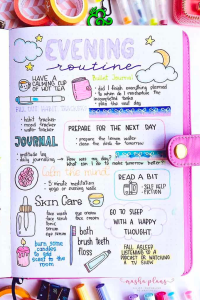 EVENING
routine
HAVE A
CALMING CUP
OF HOT TEA
Bullet Journal
did I finish everything planned
to when do I reschedule the
incompleted tasks
plan the next day
habit tracker
mood tracker
water tracker
PREPARE FOR THE NEXT DAY
prepare the lemon water
clean the desk for tomorrow
JOURNAL
gratitude log
daily journaling
How was my day?
What can I do to make tomorrow better?
Calm the mind
5 minute meditation
yoga or evening walk
READ A BIT
SELF HELP
FICTION
Skin Care
face wash
face mask
toner
serum
eye serum
eye cream
face cream
GO TO SLEEP
WITH A HAPPY
THOUGHT
bath
brush teeth
floss
burn some
candles
to add
scent to
the room
FALL ASLEEP
LISTENING TO A
PODCAST OR WATCHING
A TV SHOW
masha plans